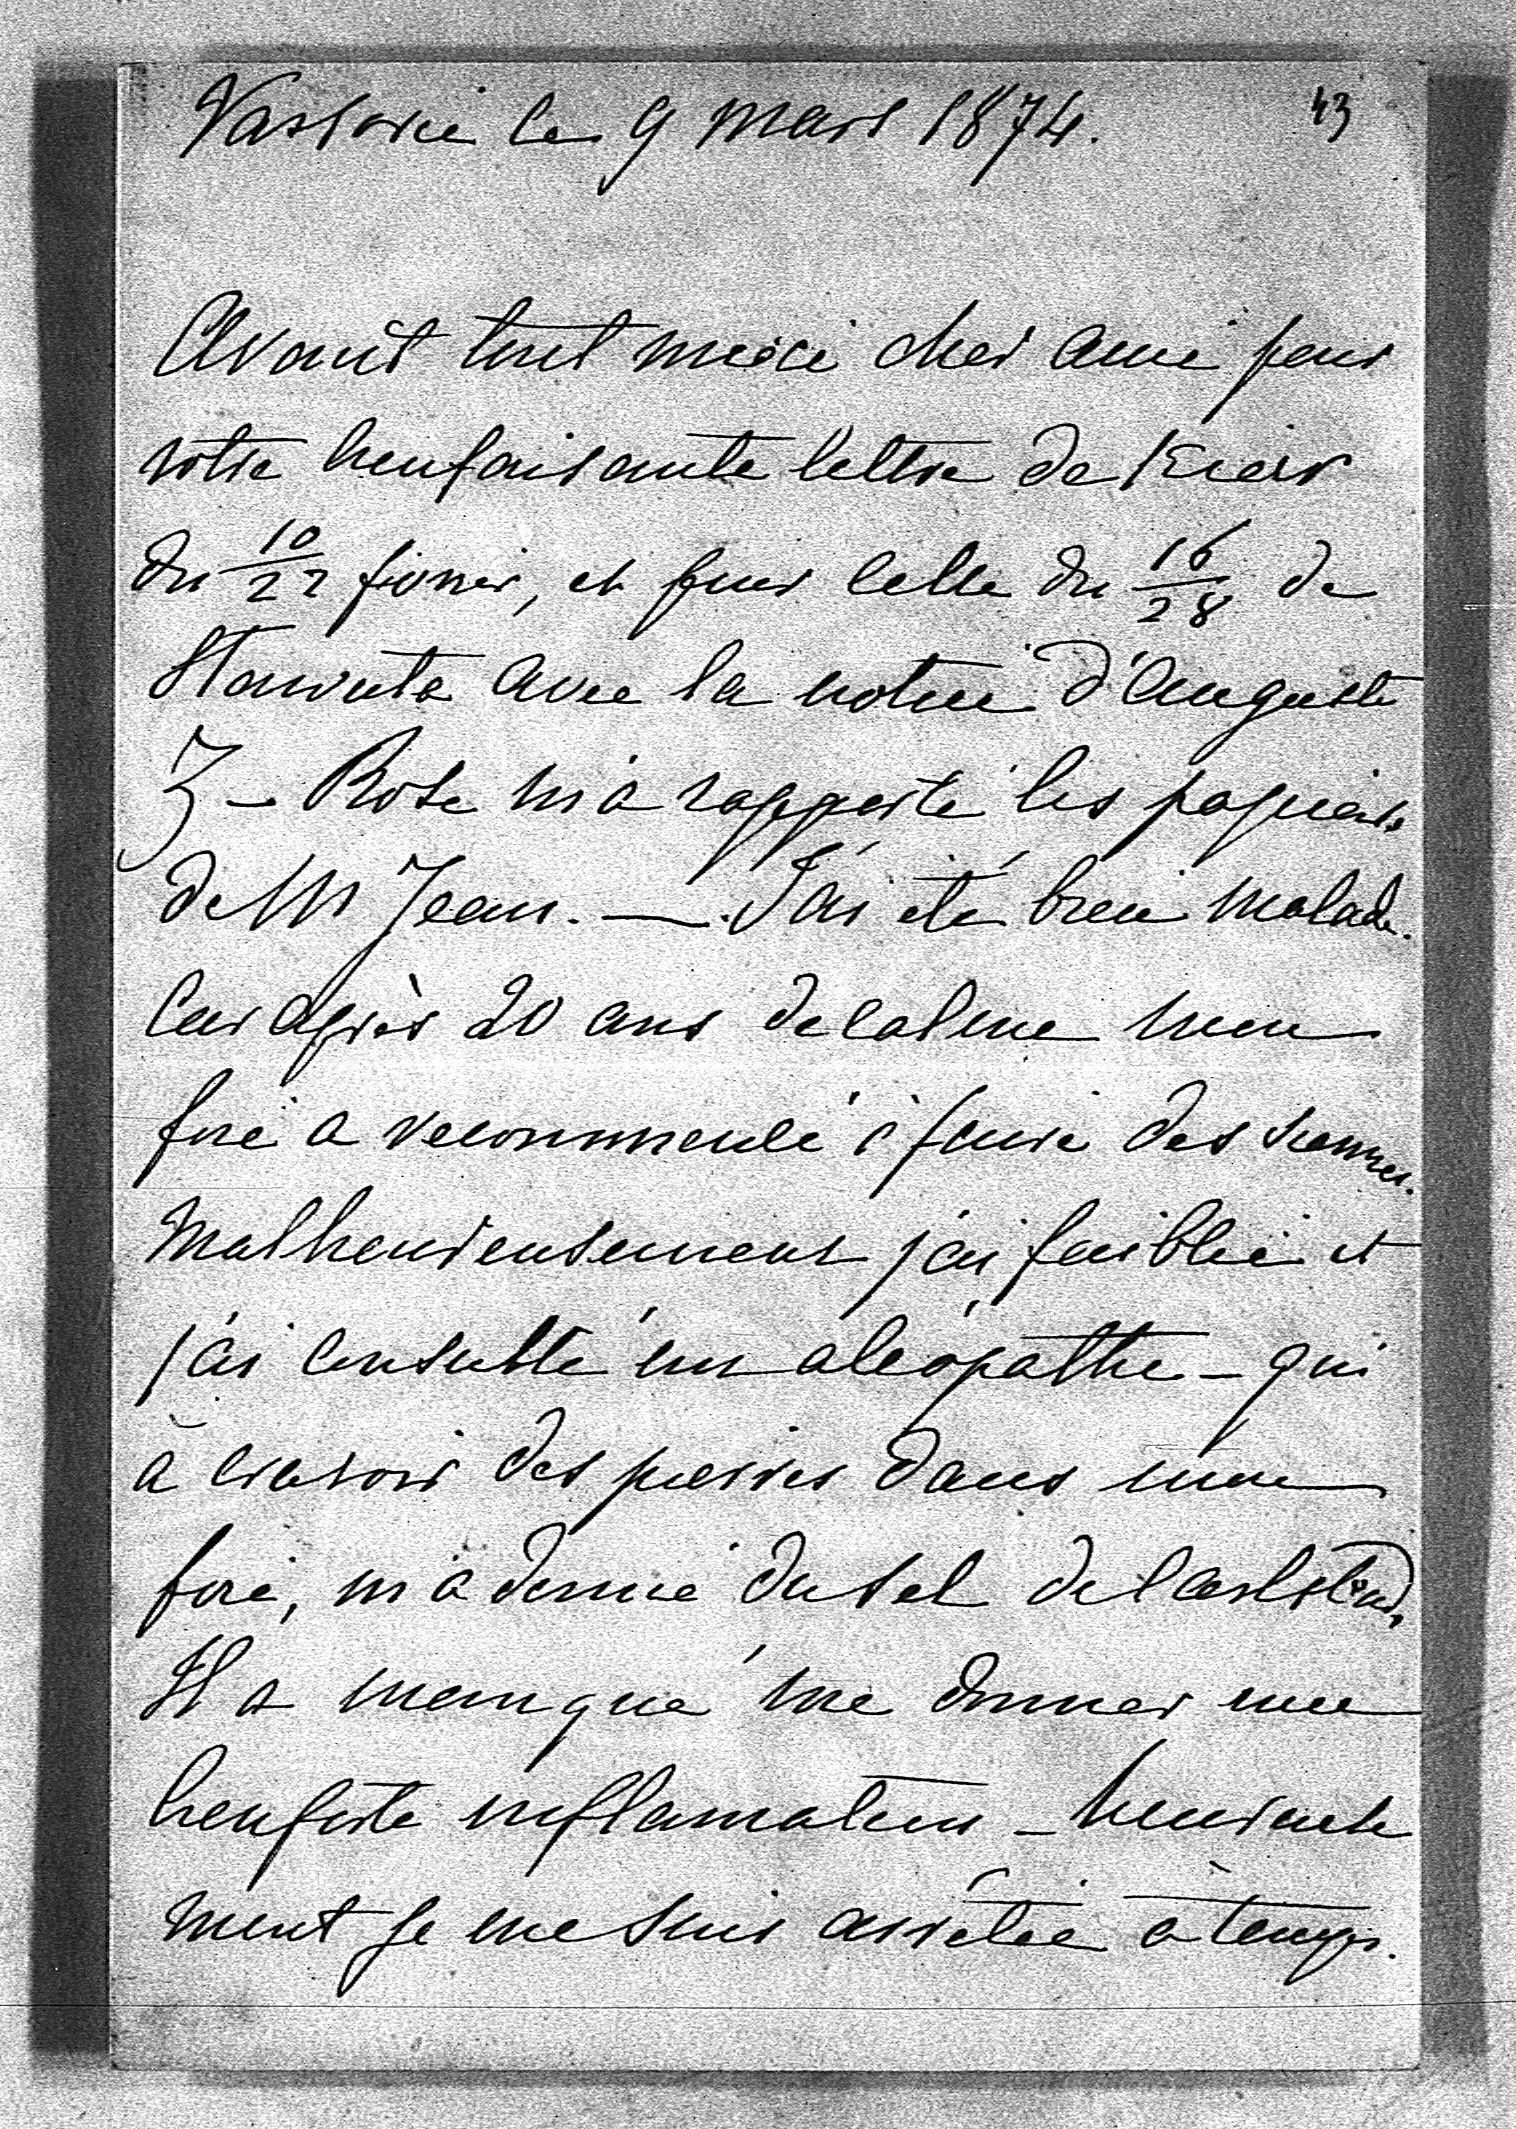 Varsovie le 9 mars 1874. 43
Avant tout merci cher ami pour
votre bienfaisante lettre de Kiew
du 10/22 fevrier, et pour celle du 16/28 de
Slawuta avec la notice d'Auguste
Z – Rose m'a rapporté les papiers
de Mr Jean. —. J'ai été bien malade.
Car après 20 ans de calme mon
foie a recommencé à faire des siennes.
Malheureusement j'ai faiblie et
j'ai consulté un aléopathe – qui
a cru voir des pierres dans mon
foie, m'a donné du sel de Carlsbad,
Il a manqué me donner une
bien forte inflamation – heureuse
ment je me suis arrêtée à temps.